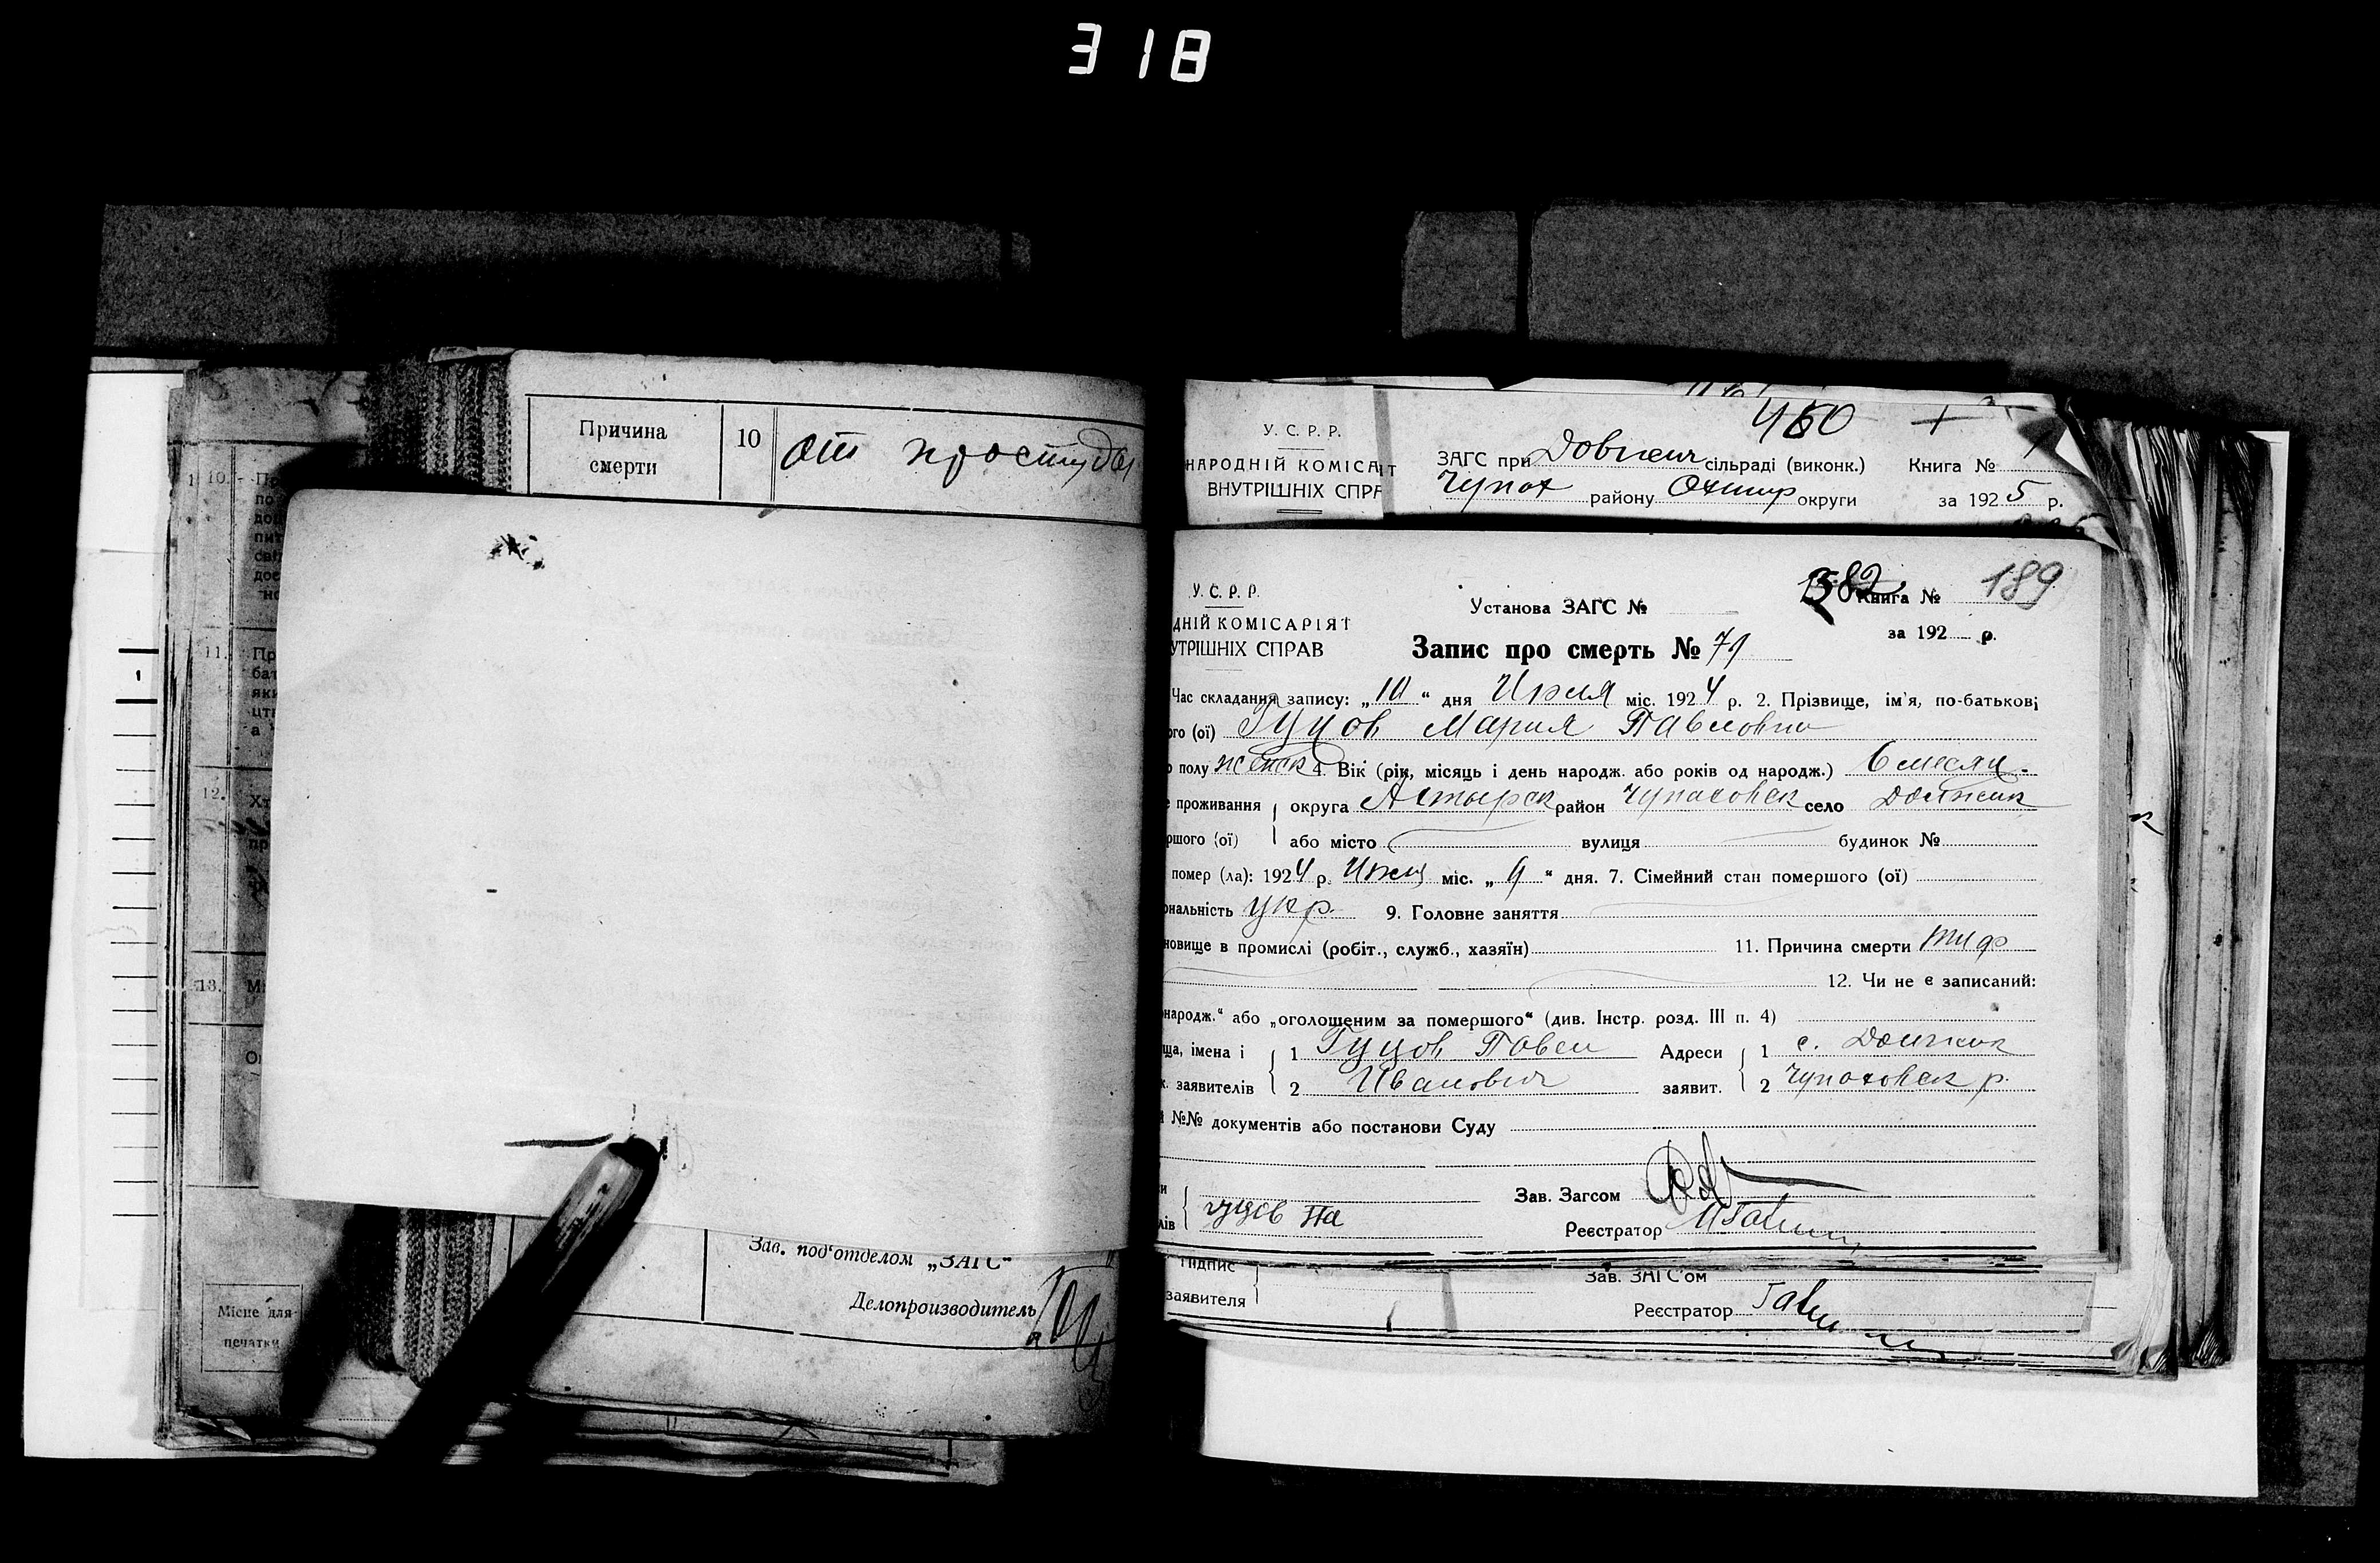 318
Причина
смерти
10
от простуды
Зав. под'отделом „ЗАГС“
Делопроизводитель
Місце для
печатки
10.
11.
12.
13.
460
У. С. Р. Р.
НАРОДНІЙ КОМІСА
ВНУТРІШНІХ СПР
ЗАГС при Довжик сільраді (виконк.) Книга № 1
Чупах району Охтир округи за 1925 р.
У. С. Р. Р.
ДНІЙ КОМІСАРІЯТ
УТРІШНІХ СПРАВ
Установа ЗАГС №
382 Книга № 189
за 192 р.
Запис про смерть № 79
Час складання запису: „10“ дня Июля міс. 1924 р. 2. Прізвище, ім'я, по-батькові
ого (ої) Гуцов Мария Павловна
полу женск 4. Вік (рік, місяць і день народж. або років од народж.) 6 месяц.
проживання округа Ахтырск район Чупаховск село Должик
ршого (ої) або місто вулиця будинок №
помер (ла): 1924 р. Июля міс. „9“ дня. 7. Сімейний стан помершого (ої)
ональність укр. 9. Головне заняття
новище в промислі (робіт., служб., хазяїн) 11. Причина смерти тиф
12. Чи не є записаний:
народж.“ або „оголошеним за помершого“ (див. Інстр. розд. III п. 4)
ща, імена і 1 Гуцов Павел Адреси 1 с. Должик
заявителів 2 Иванович заявит. 2 Чупаховск р.
№№ документів або постанови Суду
Зав. Загсом
лів гуцов Па
Реєстратор
Підпис
заявителя
Зав. ЗАГС'ом
Реєстратор